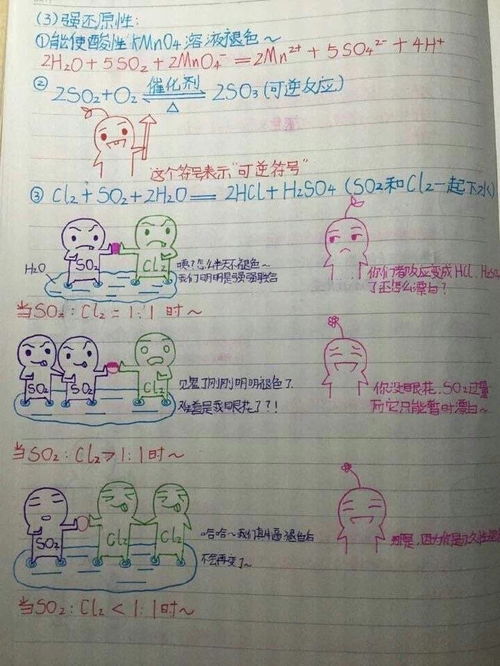 (3)强还原性:
①能使酸性KMnO4溶液褪色~
2H2O+5SO2+2MnO4⁻=2Mn²⁺+5SO4²⁻+4H⁺
② 2SO2+O2 催化剂 △ 2SO3(可逆反应)
这个符号表示"可逆符号"
③ Cl2+SO2+2H2O=2HCl+H2SO4(SO2和Cl2一起下水)
H2O SO2 Cl2
咦?怎么半天不褪色~
我们明明是强强联合
你们都反应变成HCl、H2SO4
了还怎么漂白?
当SO2:Cl2=1:1时~
SO2 SO2 Cl2
见鬼了刚刚明明褪色了
难道是我眼花了?!
你没眼花,SO2过量
所它只能暂时漂白~
当SO2:Cl2>1:1时~
SO2 Cl2 Cl2
哈哈~我们褪色后
不会再变了~
那是,因为你是永久性
当SO2:Cl2<1:1时~